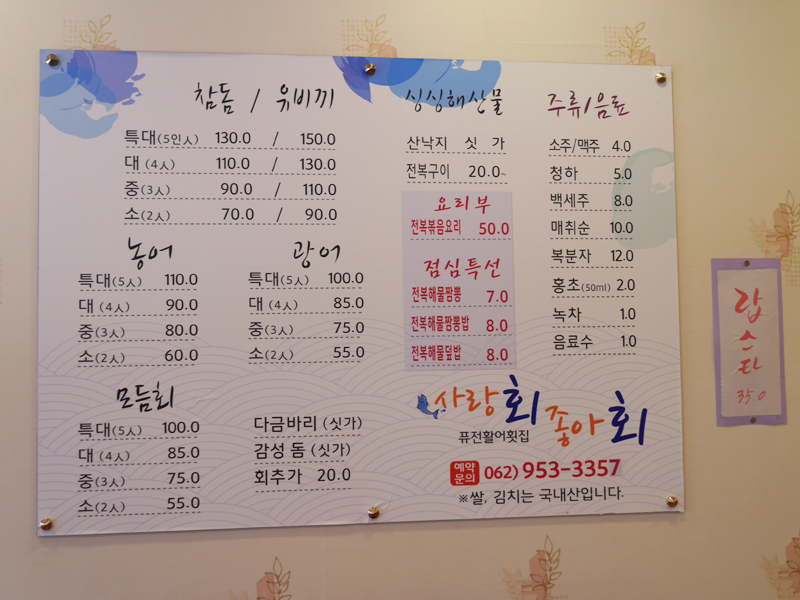 참돔 / 유비끼
특대(5인人) 130.0 / 150.0
대 (4人) 110.0 / 130.0
중(3人) 90.0 / 110.0
소(2人) 70.0 / 90.0
농어
특대(5人) 110.0
대 (4人) 90.0
중(3人) 80.0
소(2人) 60.0
광어
특대(5人) 100.0
대 (4人) 85.0
중(3人) 75.0
소(2人) 55.0
모듬회
특대(5人) 100.0
대 (4人) 85.0
중(3人) 75.0
소(2人) 55.0
다금바리 (싯가)
감성 돔 (싯가)
회추가 20.0
싱싱해산물
산낙지 싯 가
전복구이 20.0~
요리부
전복볶음요리 50.0
점심특선
전복해물짬뽕 7.0
전복해물짬뽕밥 8.0
전복해물덮밥 8.0
주류/음료
소주/맥주 4.0
청하 5.0
백세주 8.0
매취순 10.0
복분자 12.0
홍초(50ml) 2.0
녹차 1.0
음료수 1.0
사랑회 좋아회
퓨전활어횟집
예약문의 062) 953-3357
※쌀, 김치는 국내산입니다.
랍스타
35.0